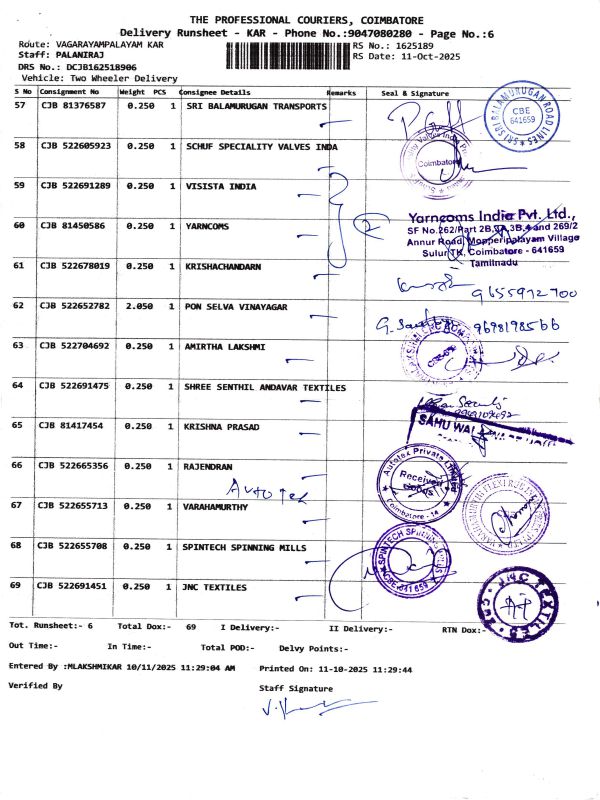 THE PROFESSIONAL COURIERS, COIMBATORE
Delivery Runsheet - KAR - Phone No.:9047080280 - Page No.:6
Route: VAGARAYAMPALAYAM KAR RS No.: 1625189
Staff: PALANIRAJ RS Date: 11-Oct-2025
DRS No.: DCJB162518906
Vehicle: Two Wheeler Delivery
S No Consignment No Weight PCS Consignee Details Remarks Seal & Signature
57 CJB 81376587 0.250 1 SRI BALAMURUGAN TRANSPORTS
SRI BALAMURUGAN ROAD LINES CBE 641659
58 CJB 522605923 0.250 1 SCHUF SPECIALITY VALVES INDA
Coimbatore
59 CJB 522691289 0.250 1 VISISTA INDIA
60 CJB 81450586 0.250 1 YARNCOMS
2
Yarncoms India Pvt. Ltd.,
SF No.262/Part 2B, 3B,4 and 269/2
Annur Road, Mopperipalayam Village
Sulur TK, Coimbatore - 641659
Tamilnadu
61 CJB 522678019 0.250 1 KRISHACHANDARN
9655972700
62 CJB 522652782 2.050 1 PON SELVA VINAYAGAR
9698198566
63 CJB 522704692 0.250 1 AMIRTHA LAKSHMI
64 CJB 522691475 0.250 1 SHREE SENTHIL ANDAVAR TEXTILES
65 CJB 81417454 0.250 1 KRISHNA PRASAD
SAHU
66 CJB 522665356 0.250 1 RAJENDRAN
Autotex
Autotex Private Limited Received Goods Coimbatore - 14
67 CJB 522655713 0.250 1 VARAHAMURTHY
68 CJB 522655708 0.250 1 SPINTECH SPINNING MILLS
SPINTECH SPINNING CBE 641659
69 CJB 522691451 0.250 1 JNC TEXTILES
JNC TEXTILES
Tot. Runsheet:- 6 Total Dox:- 69 I Delivery:- II Delivery:- RTN Dox:-
Out Time:- In Time:- Total POD:- Delvy Points:-
Entered By :MLAKSHMIKAR 10/11/2025 11:29:04 AM Printed On: 11-10-2025 11:29:44
Verified By Staff Signature